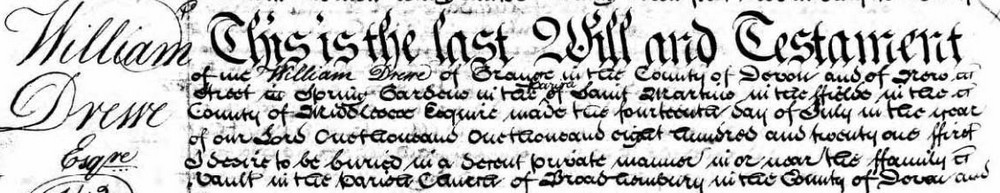 William
Drewe
Esqre
This is the last Will and Testament
of me William Drewe of Grange in the County of Devon and of New
Street in Spring Gardens in the Parish of Saint Martins in the ffields in the
County of Middlesex Esquire made the fourteenth day of July in the year
of our Lord One thousand One thousand eight hundred and twenty one ffirst
I desire to be buried in a decent private manner in or near the ffamily
Vault in the Parish Church of Broadhembury in the County of Devon and